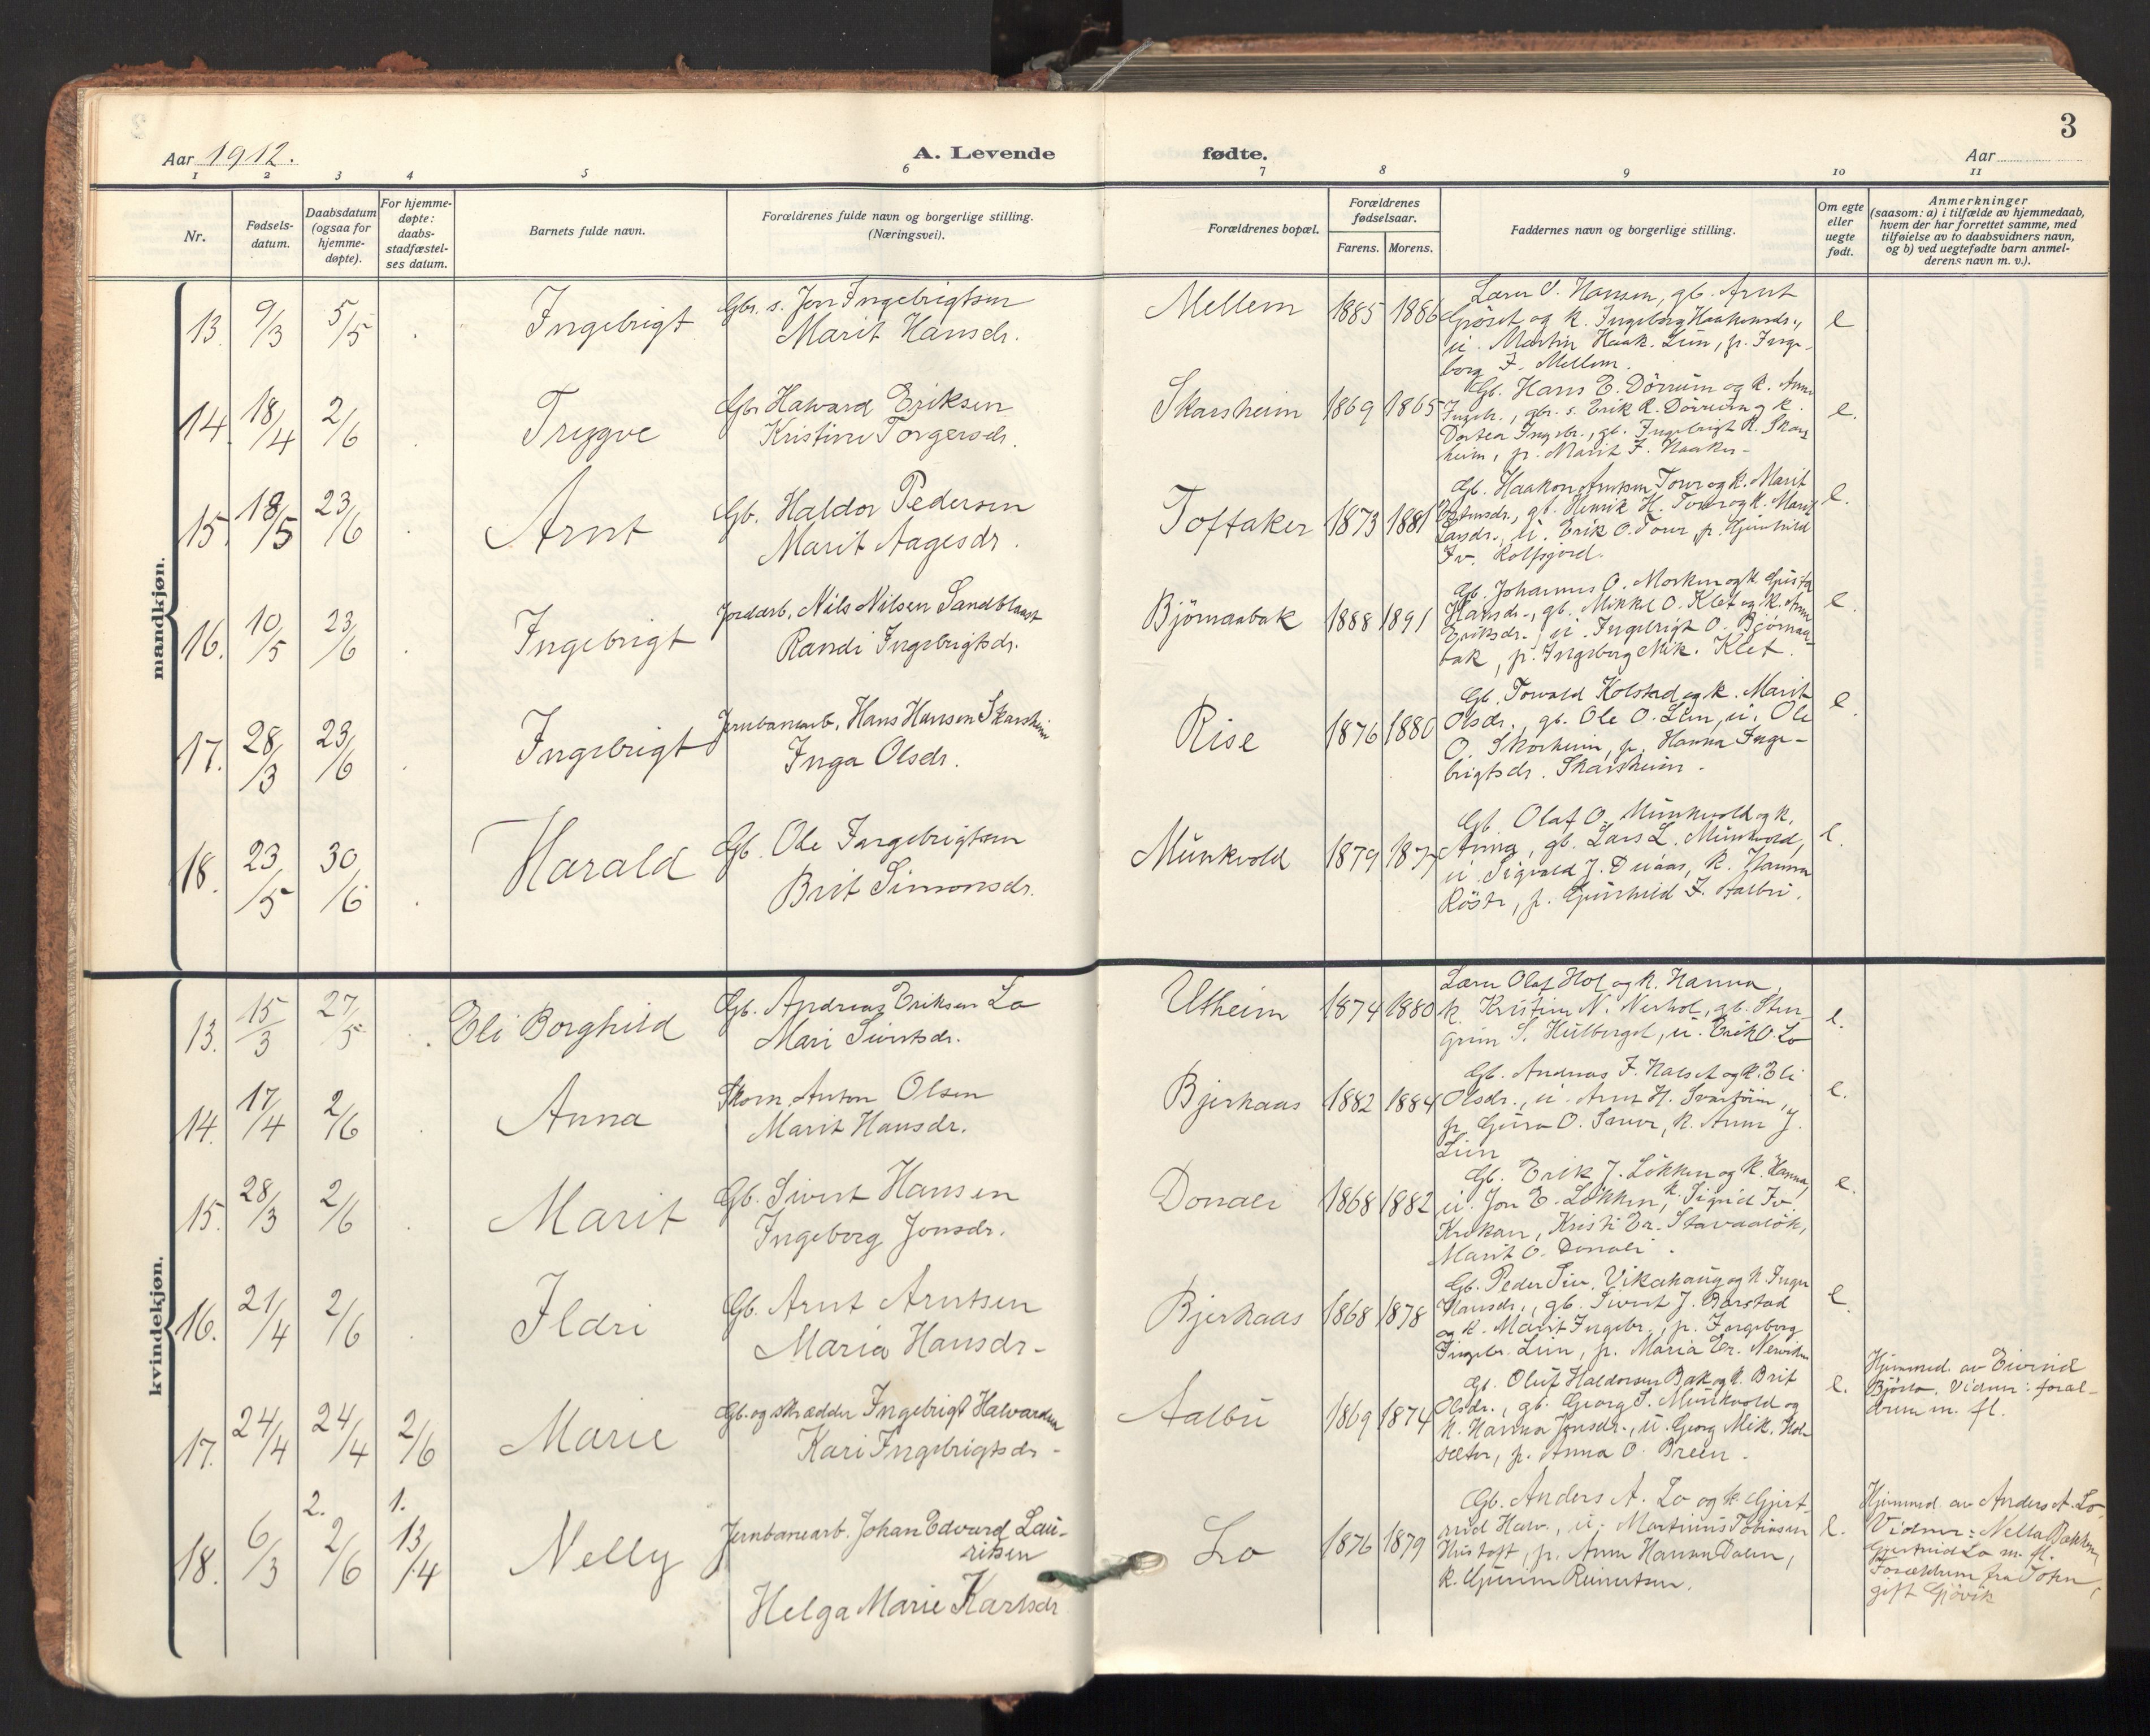 3
Aar 1912.
A. Levende fødte.
Aar
1 2 3 4 5 6 7 8 9 10 11
Nr.
Fødsels-
datum.
Daabsdatum
(ogsaa for
hjemme-
døpte).
For hjemme-
døpte:
daabs-
stadfæstel-
ses datum.
Barnets fulde navn.
Forældrenes fulde navn og borgerlige stilling.
(Næringsvei).
Forældrenes bopæl.
Forældrenes
fødselsaar.
Farens. Morens.
Faddernes navn og borgerlige stilling.
Om egte
eller
uegte
født.
Anmerkninger
(saasom: a) i tilfælde av hjemmedaab,
hvem der har forrettet samme, med
tilføielse av to daabsvidners navn,
og b) ved uegtefødte barn anmel-
derens navn m. v.).
mandkjøn.
13. 9/3 5/5 Ingebrigt
Gbr. s. Jon Ingebrigtsen
Marit Hansdr.
Mellem 1885 1886
Lærer S. Hansen, gb. Arnt
Grøset og k. Ingeborg Haakensdr.,
u. Martin Haak. Lun, p. Inge-
borg I. Mellem.
e
14. 18/4 2/6 Trygve
Gbr Halvard Eriksen
Kristine Torgersdr.
Skarsheim 1869 1865
Gb. Hans E. Dörrum og k. Anne
Ingebr., gbr. s. Erik R. Dörrum og k.
Dortea Ingebr., gb. Ingebrigt R. Skars
heim, p. Marit F. Haaker-
e.
15. 18/5 23/6 Arnt
Gb. Haldor Pedersen
Marit Aagesdr.
Toftaker 1873 1881
Gb. Haakon Arntsen Tour og k. Marit
gb. Henrik H. Tour og k. Marit
Larsdr., u. Erik O. Tour, p. Gunhild
Iv. Rolfsjord.
e.
16. 10/5 23/6 Ingebrigt
Jordarb. Nils Nilsen Sandblaast
Randi Ingebrigtsdr.
Björnaabak 1888 1891
Gb. Johannes O. Morken og k. Gusta
Hansdr., gb. Mikkel O. Klet og k. Anne
Eriksdr., u. Ingebrigt O. Bjørnaa-
bak, p. Ingeborg Mik. Klet.
e.
17. 28/3 23/6 Ingebrigt
Jernbanearb. Hans Hansen Skarsheim
Inga Olsdr.
Rise 1876 1880
Gb. Torvald Kolstad og k. Marit
Olsdr., gb. Ole O. Lun, u. Ole
O. Skorheim, p. Hanna Inge-
brigtsdr. Skarsheim.
e.
18. 23/5 30/6 Harald
Gb. Ole Ingebrigtsen
Brit Simonsdr.
Munkvold 1879 1877
Gb. Olaf O. Munkvold og k.
Anna, gb. Lars L. Munkvold,
u. Sigvald J. Duaas, k. Hanna
Röstr, p. Gunhild I. Aalbu.
e.
kvindekjøn.
13. 15/3 27/5 Eli Borghild
Gb. Andreas Eriksen Lo
Mari Sivertsdr.
Utheim 1874 1880
Lærer Olaf Hol og k. Hanna,
k. Kristine N. Nerhol, gb. Sten-
grim S. Hulberget, u. Erik O. Lo
e.
14. 17/4 2/6 Anna
Skom. Anton Olsen
Marit Hansdr.
Bjerkaas 1882 1884
Gb. Andreas F. Halset og k. Eli
Olsdr., u. Arnt H. Svartöien,
p. Gura O. Snuve, k. Anne J.
Lun
e.
15. 28/3 2/6 Marit
Gb. Sivert Hansen
Ingeborg Jonsdr.
Donali 1868 1882
Gb. Erik J. Løkken og k. Hanna,
u. Jon E. Løkken, k. Sigrid Iv.
Krokan, Kristi Er. Stavaaløk,
Marit O. Donali.
e.
16. 21/4 2/6 Ildri
Gb. Arnt Arntsen
Maria Hansdr-
Bjerkaas 1868 1878
Gb. Peder Siv. Vikahaug og k. Inger
Hansdr., gb. Sivert J. Barstad
og k. Marit Ingebr., p. Ingeborg
Ingebr. Lun, p. Maria Er. Nerviken
e.
17. 24/4 24/4 2/6 Marie
Gb. og skrædder Ingebrigt Halvardsen
Kari Ingebrigtsdr-
Aalbu 1869 1874
Gb. Oluf Haldorsen Bak og k. Brit
Olsdr., gb. Georg S. Munkvold og
k. Hanna Jonsdr., u. Georg Mik. Hol-
sæter, p. Anna O. Breen.
e.
Hjemmed. av Eivind
Bjørlo. Vidner: foræl-
drene m. fl.
18. 6/3 2. 2/6 1. 13/4 Nelly
Jernbanearb. Johan Edvard Lau-
ritsen
Helga Marie Karlsdr
Lo 1876 1879
Gb. Anders A. Lo og k. Gjert-
rud Halv., u. Martinus Tobiasen
Hustoft, p. Anne Hanna Dalen,
k. Gurine Reinertsen.
e.
Hjemmed. av Anders A. Lo,
Vidner: Nella Bakken,
Gjertrud Lo m. fl.
Forældrene fra Toten,
gift Gjövik